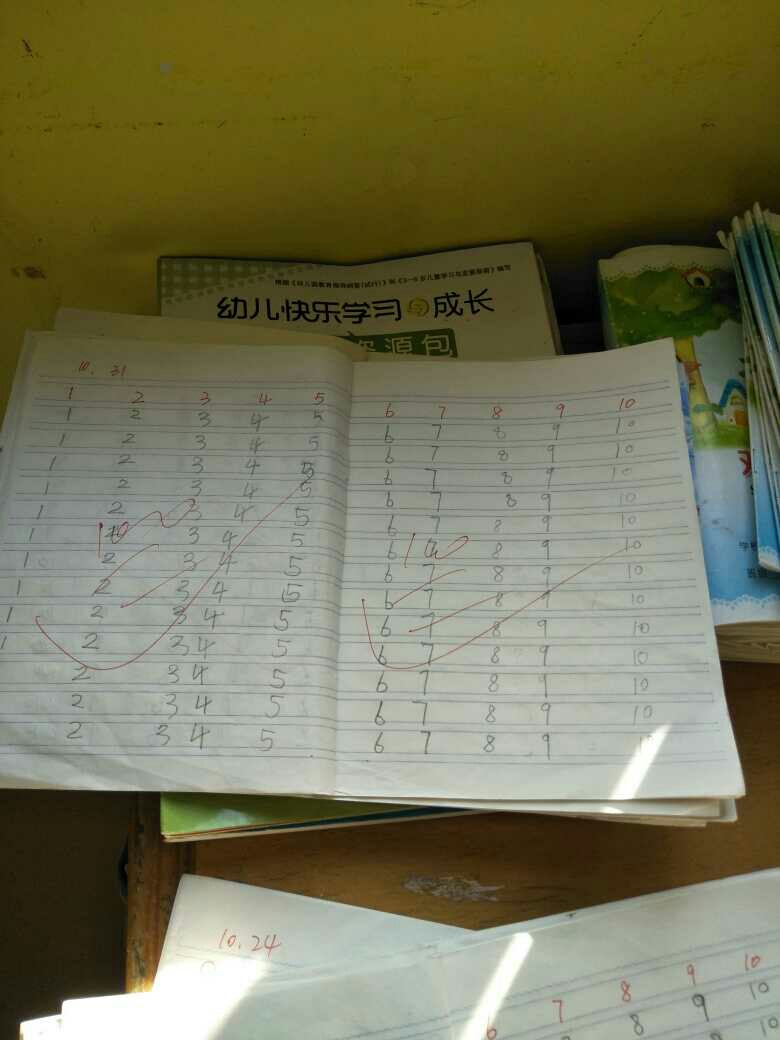 根据《幼儿园教育指导纲要(试行)》和《3-6岁儿童学习与发展指南》编写
幼儿快乐学习与成长
资源包
10. 31
1 2 3 4 5
1 2 3 4 5
1 2 3 4 5
1 2 3 4 5
1 2 3 4 5
1 2 3 4 5
1 2 3 4 5
1 2 3 4 5
1 2 3 4 5
1 2 3 4 5
1 2 3 4 5
2 3 4 5
2 3 4 5
2 3 4 5
100
6 7 8 9 10
6 7 8 9 10
6 7 8 9 10
6 7 8 9 10
6 7 8 9 10
6 7 8 9 10
6 7 8 9 10
6 7 8 9 10
6 7 8 9 10
6 7 8 9 10
6 7 8 9 10
6 7 8 9 10
6 7 8 9 10
6 7 8 9 10
100
10.24
6 7 8 9 10
8 9 10
10